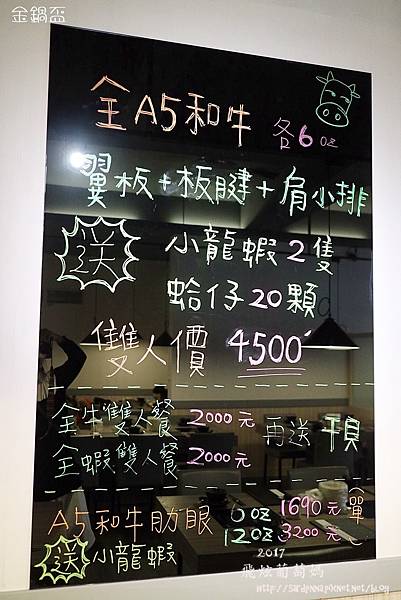 金鍋盃
全A5和牛 各6oz
翼板+板腱+肩小排
送 小龍蝦2隻
蛤仔20顆
雙人價 4500
全牛雙人餐 2000元 再送 干貝
全蝦雙人餐 2000元
A5和牛肋眼 6oz 1690元 (單)
12oz 3200元
送 小龍蝦
2017
飛炫葡萄媽
http://sardinnapixnet.net/blog